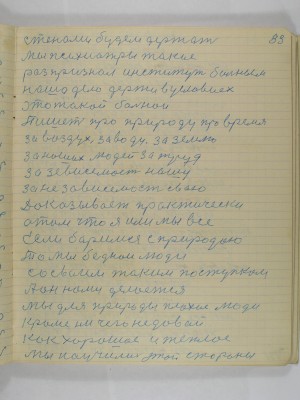 93
стенами будем держат
мы психиатры такое
разпризнал институт больнем
нашо дело держи в условиех
это такой больной
Пишет про природу про время
за воздух, за воду, за землю
за наших людей за труд
за зависемост нашу
за не зависемост свою
Доказывает практически
о том что я или мы все
Если боримся с природою
То мы бедном люди
со своим таким поступком
А он нами делается
мы для природы плохое люди
Кроме им чего недовай
как хорошое и теплое
мы получили этой стороны